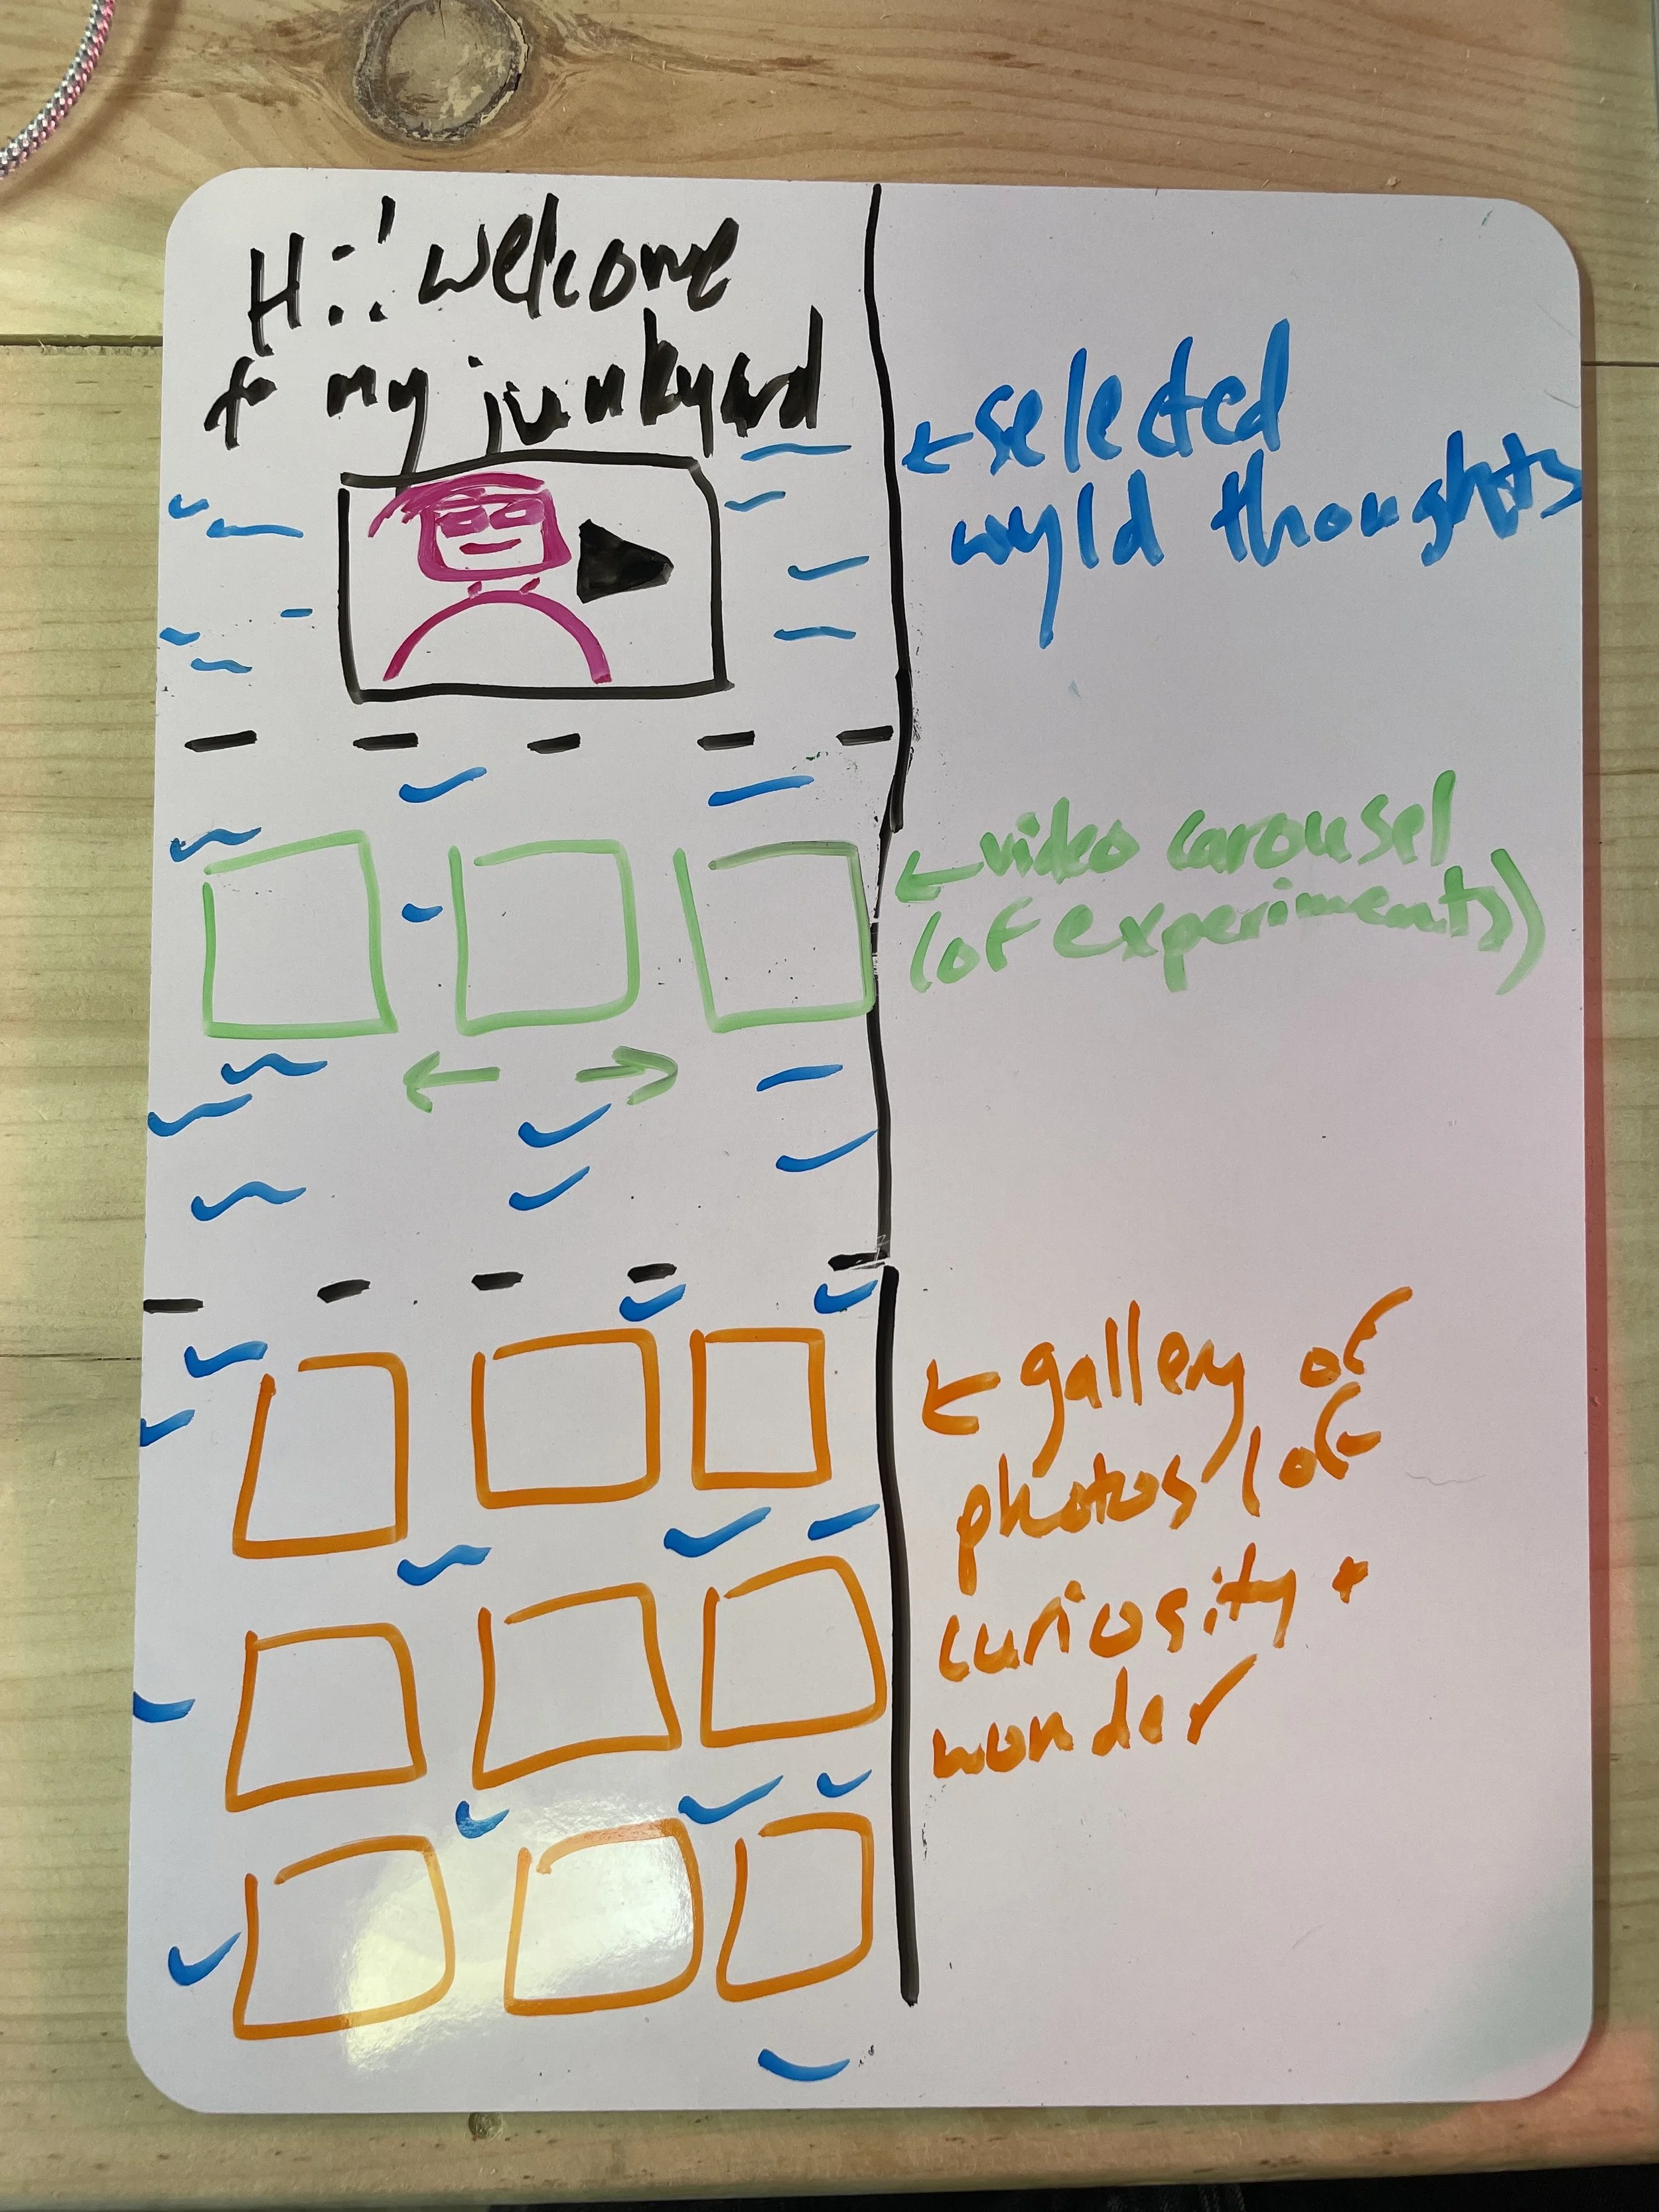 Hi! welcome
to my junkyard
←selected
wyld thoughts
←video carousel
(of experiments)
←gallery of
photos (of
curiosity +
wonder